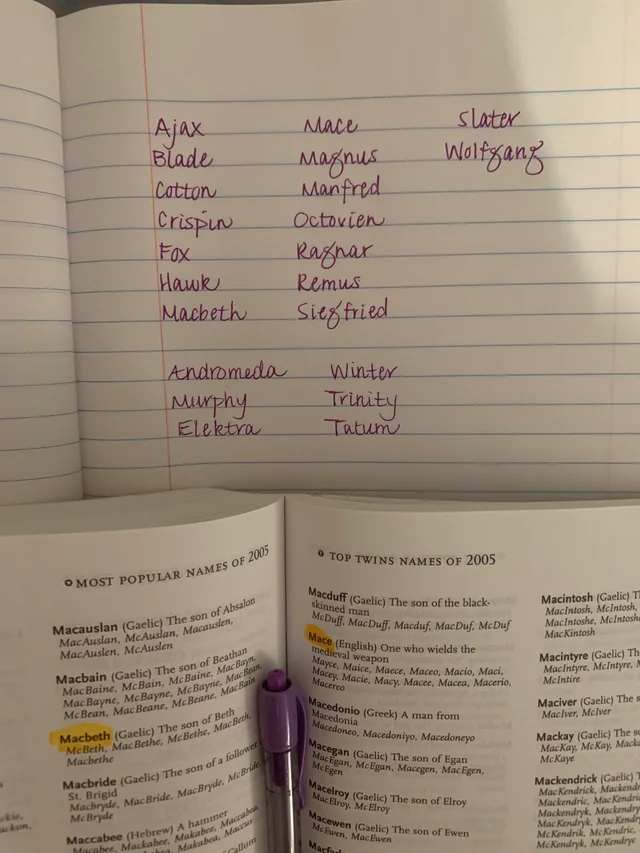 Ajax Mace Slater
Blade Magnus Wolfgang
Cotton Manfred
Crispin Octovien
Fox Ragnar
Hawk Remus
Macbeth Siegfried
Andromeda Winter
Murphy Trinity
Elektra Tatum
MOST POPULAR NAMES OF 2005
Macauslan (Gaelic) The son of Absalon
MacAuslan, McAuslan, Macauslen,
MacAuslen, McAuslen
Macbain (Gaelic) The son of Beathan
MacBaine, McBain, McBaine, MacBayn,
MacBayne, McBayne, McBayne, MacBean,
McBean, MacBeane, McBeane, MacBain
Macbeth (Gaelic) The son of Beth
McBeth, MacBethe, McBethe, MacBeth,
Macbethe
Macbride (Gaelic) The son of a follower
St. Brigid
Macbryde, MacBride, MacBryde, McBride,
McBryde
Maccabee (Hebrew) A hammer
Macabee, Mackabee, Makabee, Maccabea,
Mackabea, Makabea, Maccus
TOP TWINS NAMES OF 2005
Macduff (Gaelic) The son of the black-
skinned man
McDuff, MacDuff, Macduf, MacDuf, McDuf
Mace (English) One who wields the
medieval weapon
Mayce, Maice, Maece, Maceo, Macio, Maci,
Macey, Macie, Macy, Macee, Macea, Macerio,
Macereo
Macedonio (Greek) A man from
Macedonia
Macedoneo, Macedoniyo, Macedoneyo
Macegan (Gaelic) The son of Egan
MacEgan, McEgan, Macegen, MacEgen,
McEgen
Macelroy (Gaelic) The son of Elroy
MacElroy, McElroy
Macewen (Gaelic) The son of Ewen
McEwen, MacEwen
Macintosh (Gaelic)
MacIntosh, McIntosh,
Macintoshe, McIntosh
MacKintosh
Macintyre (Gaelic)
MacIntyre, McIntyre,
McIntire
Maciver (Gaelic) The s
MacIver, McIver
Mackay (Gaelic) The s
MacKay, McKay,
McKaye
Mackendrick (Gaelic)
MacKendrick,
Mackendric, MacKendr
Mackendryk, MacKendry
McKendrik, McKendric,
McKendryk, McKendryc